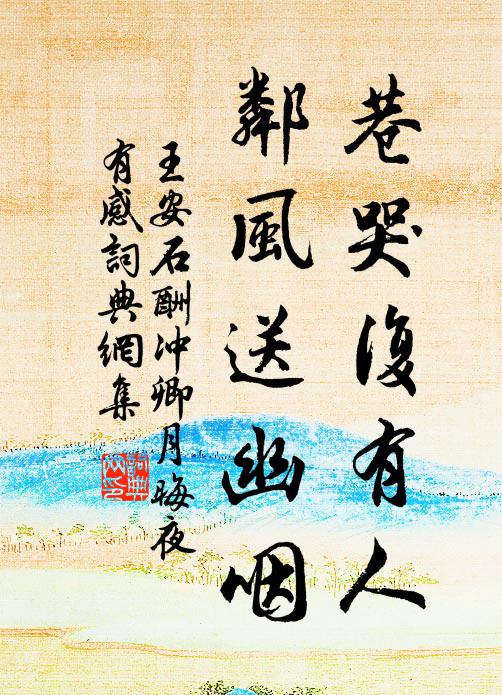 巷哭復有人
鄰風送幽咽
王安石酬沖卿月晦夜
有感詞典網集